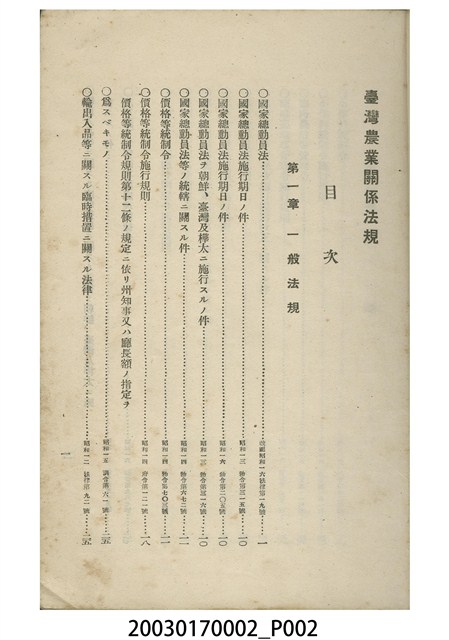 臺灣農業關係法規
目次
第一章 一般法規
○國家總動員法…………改題昭和一六法律第一九號……一
○國家總動員法施行期日ノ件…………昭和一三 勅令第三一五號……一〇
○國家總動員法施行期日ノ件…………昭和一六 勅令第二〇五號……一〇
○國家總動員法ヲ朝鮮、臺灣及樺太ニ施行スルノ件…………昭和一三 勅令第三一六號……一〇
○國家總動員法等ノ統轄ニ關スル件…………昭和一四 勅令第六七二號……一一
○價格等統制令…………昭和一四 勅令第七〇三號……一一
○價格等統制令施行規則…………昭和一四 府令第一二一號……一八
價格等統制令規則第十二條ノ規定ニ依リ州知事又ハ廳長額ノ指定ヲ
○爲スベキモノ…………昭和一五 訓令第六一號……二五
○輸出入品等ニ關スル臨時措置ニ關スル法律…………昭和一二 法律第九二號……二五
一
20030170002_P002